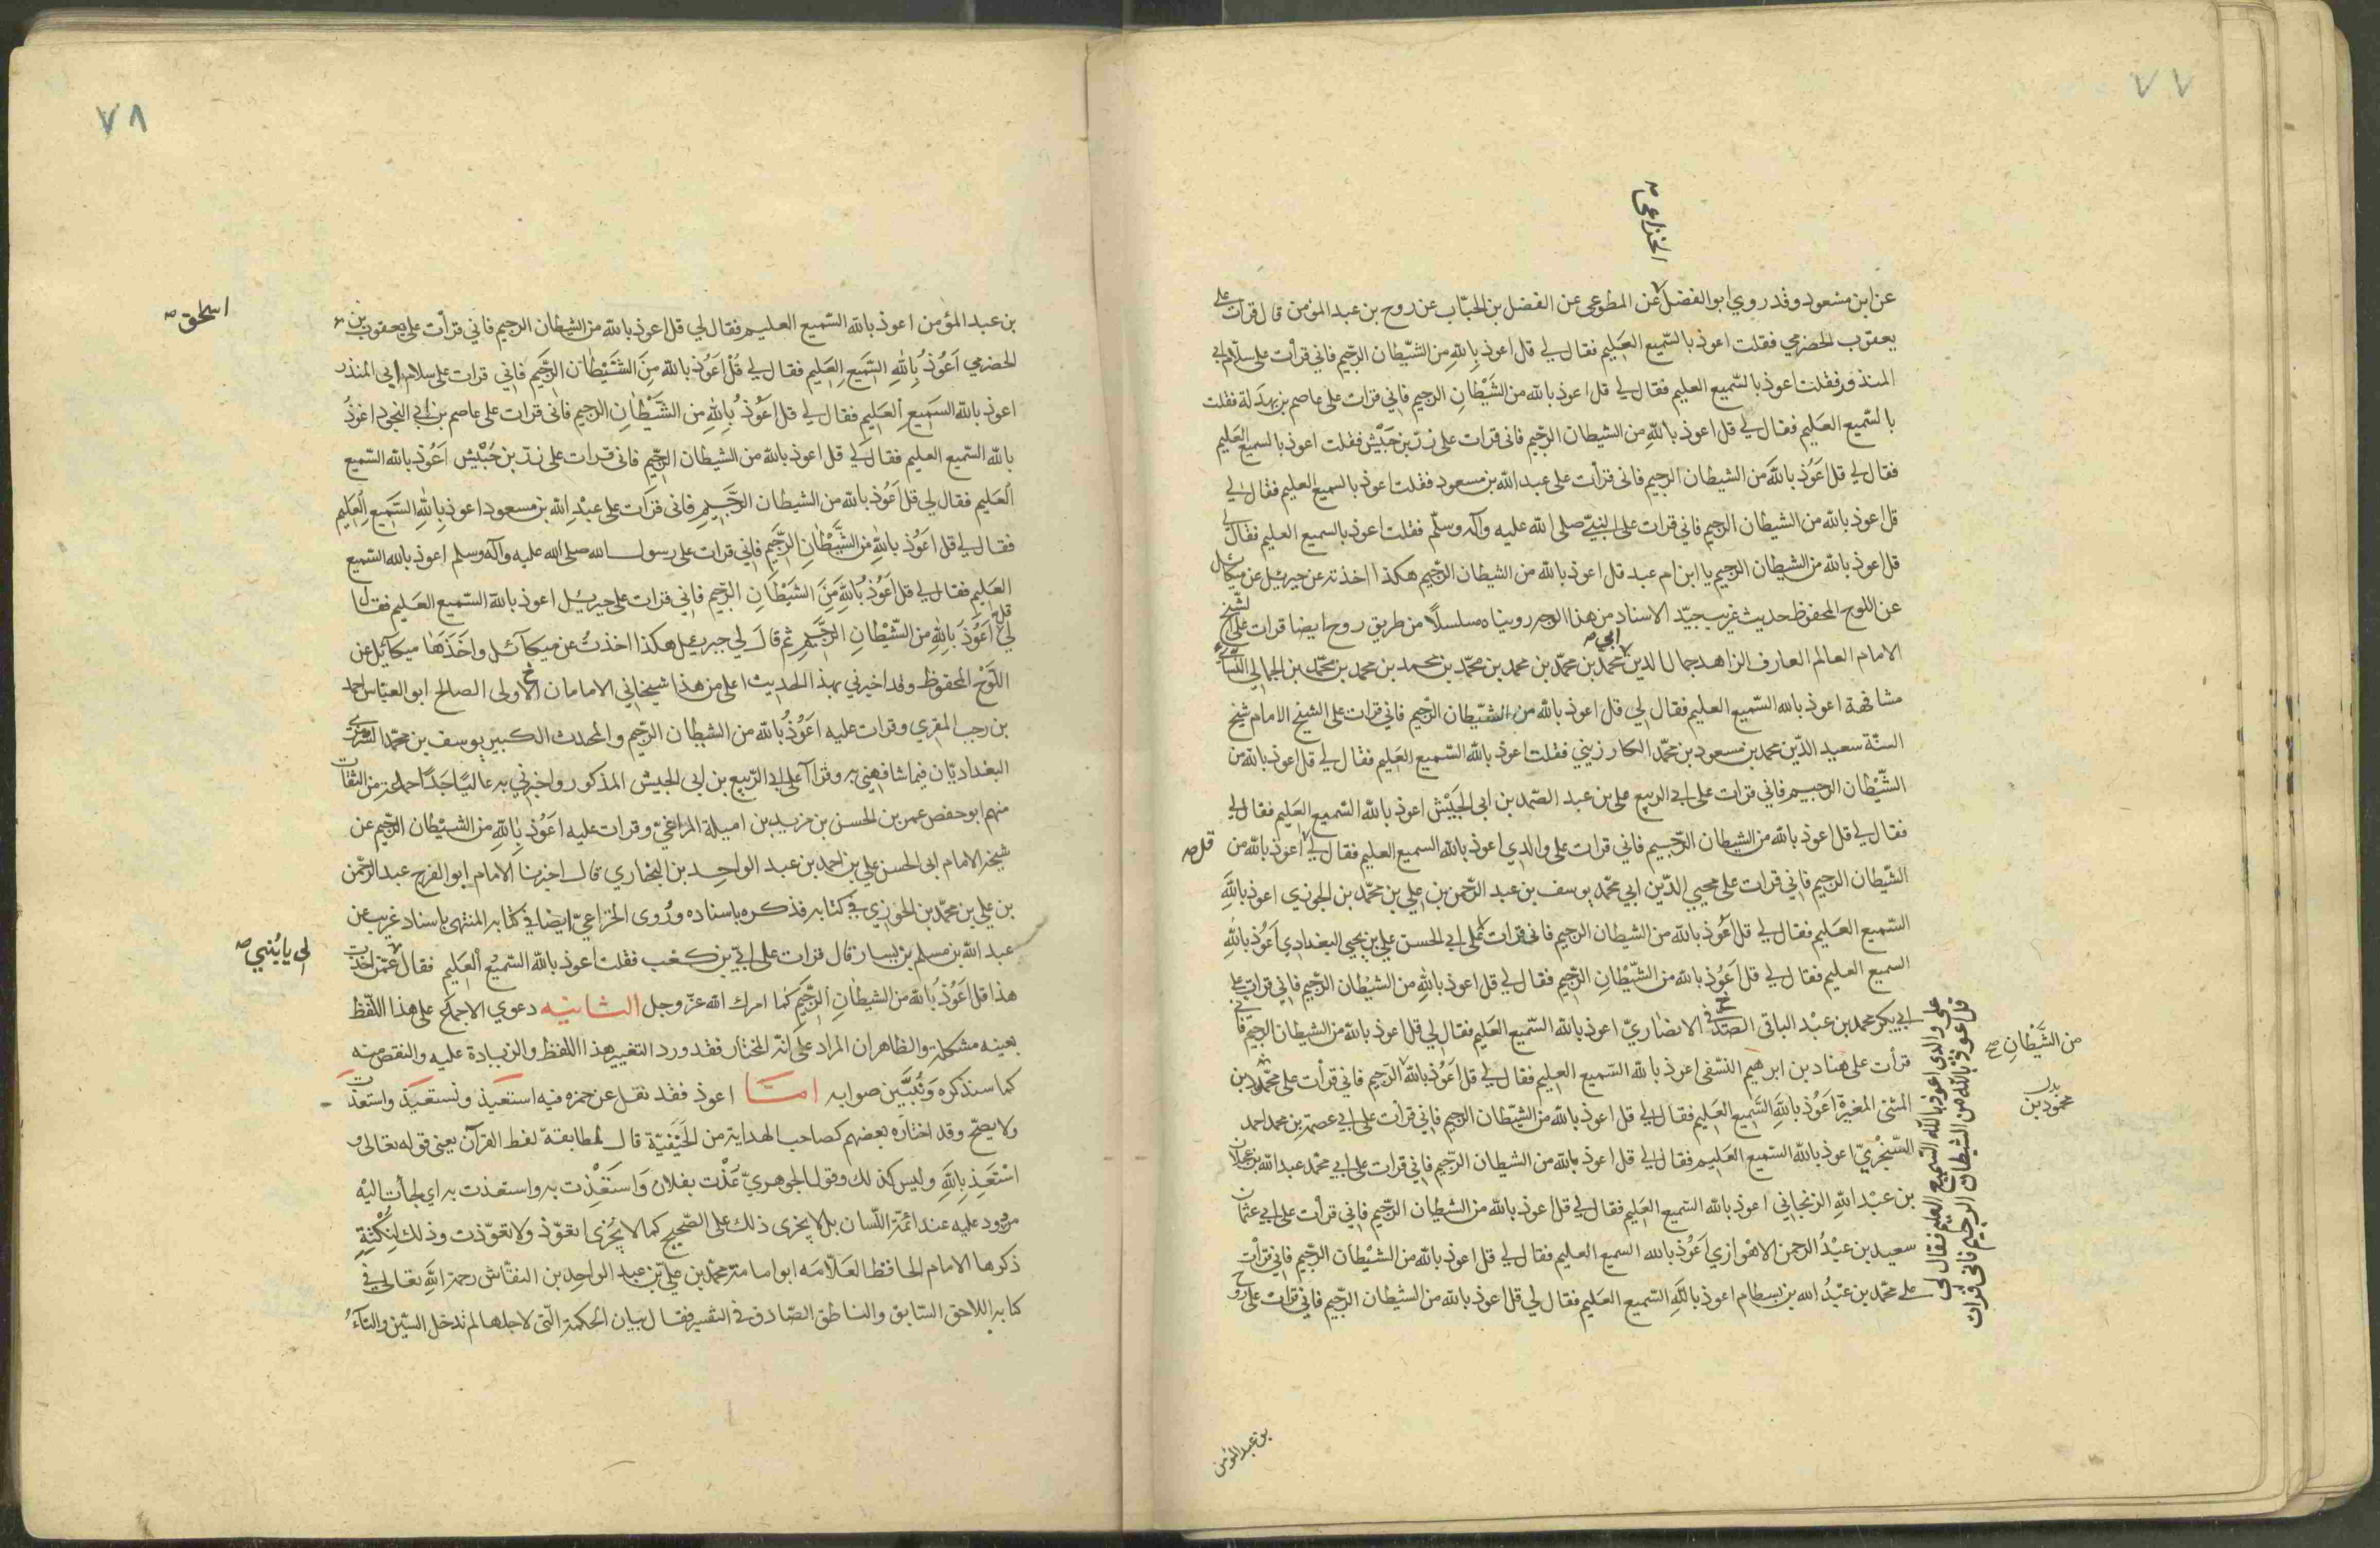 ٧٧
الخزاعى صح
عن ابن مسعود وقد روي ابو الفضل عن المطوعى عن الفضل بن الحبّاب عن روح بن عبد المؤمن قال قرات على
يعقوب الحضرمي فقلت اعوذ بالسّميع العَليم فقال لي قل اعوذ بِاللهِ من الشّيطان الرجّيم فاني قرأت على سلّام ابي
المنذور فقلت اعوذ بالسّميع العليم فقال لي قل اعوذ بالله من الشَيْطانِ الرجيم فاني قرات على عاصم بن بهدَلة فقلت
بالسّميع العَليم فقال لي قل اعوذ باللهِ من الشيطان الرجّيم فانى قرات على زرّ بن حَبَيْش فقلت اعوذ بالسميع العَليم
فقال لي قل اعَوُذ باللهَ من الشيطان الرجيم فانى قرأت على عبد الله بن مسعود فقلت اعوذ بالسميع العليم فقال لي
قل اعوذ بالله من الشيطان الرجيم فاني قرات على النبيّ صلى الله عليه وآله وسلّم فقلت اعوذ بالسميع العليم فقال لي
قل اعوذ بالله من الشيطان الرجيم يا ابن ام عبد قل اعوذ بالله من الشيطان الرجّيم هكذا اخذته عن جبرئيل عن ميكائيل
عن اللوح المحفوظ حديث غريب جيّد الاسناد من هذا الوجه رويناه مسلسلًا من طريق روح ايضا قرات على الشّيخ
الامام العالم العارف الزاهد جمال الدين ابي صح محمد بن محمّد بن محمد بن محمّد بن محمد بن محمد بن محمّد بن الجمالي النسائي
مشافهة اعوذ بالله السّميع العليم فقال لي قل اعوذ بالله من الشّيطان الرجّيم فاني قرات على الشيخ الامام شيخ
السنّة سعيد الدّين محمد بن مسعود بن محمّد الكارزيني فقلت اعوذ بالله السّميع العَليم فقال لي قل اعوذ بالله من
الشّيْطان الرجيم فاني قرات على ابي الربيع على بن عبد الصّمد بن ابى الجَيَيْش اعوذ بالله السّميع العَليم فقال لي
فقال لي قل اعوذ بالله من الشيطان الرّجيم فاني قرات على والدي اعوذ بالله السميع العليم فقال لي اعوذ بالله من
قل صح
الشّيطان الرجيم فاني قرات على محيي الدّين ابي محمّد يوسف بن عبد الرّحمن بن علي بن محمّد بن الجوزي اعوذ باللَّهِ
السّميع العَليم فقال لي قل اعَوُذ بالله من الشيطان الرجيم فانى قرات على ابي الحسن علي بن يحيى البغدادي اَعَوُذ باللهِ
السميع العَليم فقال لي قل اَعَوُذ بالله من الشّيْطانِ الرّجيم فقال لي قل اعوذ باللهِ من الشيْطان الرجّيم فاني قرات على
ابي بكر محمد بن عبْد الباقى الصّدَفى الانصاريّ اعوذ بالله السّميع العَليم فقال لي قل اعوذ بالله من الشيطان الرجيم فانى
قرأت على هناد بن ابرهيم النسّفى اعوذ بالله السّميع العليم فقال لي قل اَعَوُذ بالله الرّجيم فاني قرأت على محّمد بن
من الشَّيْطانِ صح
المثنى المغيرة اعَوُذ باللَّهِ السّمِيع العَليم فقال لي قل اعوذ بالله من الشيّطان الرجيم فاني قرأت على ابي عصمة بن محمد احمد
بدل محمود بن
السّنجْريّ اعوذ بالله السّميع العَليم فقال لي قل اعوذ بالله من الشيطان الرّجيم فاني قرات على ابي محمّد عبد الله بن عجلان
بن عبْد الله الزنجاني اعوذ بالله السّميع العَليم فقال لي قل اعوذ بالله من الشَيْطان الرّجيم فاني قرأت على ابي عثمان
سعيد بن عبْدُ الرحمن الاهْوازي اَعَوُذ بالله السميع العليم فقال لي قل اعوذ بالله من الشيْطان الرجّيم فاني قرأت
على محمّد بن عبْدُ الله بن بسطام اعوذ باللَّهِ السّميع العَليم فقال لي قل اعوذ بالله من الشيطان الرّجيم فاني قراتْ على روح
على والدى اعوذ بالله السميع العليم فقال لى
قل اعوذ بالله من الشيطان الرجيم فانى قرات
بن عبد المؤمن
٧٨
بن عبد المؤمن اعوذ بالله السّميع العليم فقال لي قل اعوذ بالله من الشيطان الرجيم فاني قرأت على يعقوب بن
اسحٰق صح
الحضرمي اَعَوُذ بِاللهِ السَّمَيع العَليم فقال لي قُلْ اَعَوُذ بالله مِنَ الشَّيْطان الرَّجَيم فاني قرات على سلام ابى المنذر
اعوذ بالله السَمَيع العَليم فقال لي قل اعَوُذ بُاللهِ من الشَّيْطانِ الرجيم فانى قرات على عاصم بن ابي النجود اعَوُذُ
بالله السّميع العليم فقال لي قل اعوذ بالله من الشيطان الرجّيم فانى قرات على زرّ بن حُبْيش اَعَوُذ بالله السّميع
العَليم فقال لي قل اَعَوُذ بالله من الشيطان الرَّجَيمِ فانى قرَات على عبْدِ الله بن مسعود اعوذ بِاللهِ السَّمَيع العَليم
فقال لي قل اعَوُذ باللهِ من الشَّيَطْانِ الرجَّيمِ فاني قرات على رسول الله صلى الله عليه وآله وسلم اعوذ بالله السّميع
العَليم فقال لي قل اَعَوُذ بُاللَّهِ مَنَ الشَيْطانِ الرجّيم فاني قرات على جبريئل اعوذ بالله السّميع العَليم فقال
لي قل اَعَوُذ بَاللهِ من الشَيْطانِ الرجَّيمِ ثم قالَ لي جبرئيل هكذا اخذتُ عن ميكآئيل واخَذَهَا ميكآئيل عن
اللَوْح المحفوظ وقد اخبرني بهذا الحديث اعلى من هذا شيخاني الامامان الاولى الصالح ابو العبّاس احمد
بن رجب المقري وقرات عليه اعَوُذُ بُالله من الشيطان الرجّيم والمحدث الكبير يوسف بن محمّد السّرمرّي
البغداديّان فيما شافهني به وقرآ على ابي الرّبيع بن ابى الجيش المذكور واخبرني به عاليًا جدًّا جماعة من الثقات
منهم ابو حفص عمر بن الحسن بن مزيد بن اميلة المراغيّ وقرات عليه اعَوُذ باللهِ من الشيْطان الرّجيم عن
شيخه الامام ابى الحسن علي بن احمد بن عبد الواحد بن البخاري قال اخبرنا الامام ابو الفرج عبد الرحّمن
بن علي بن محمّد بن الجوزي في كتابه فذكره باسناده ورُوى الخزاعيّ ايضا في كتابه المنتهى باسناد غريب عن
عبد الله بن مسلم بن يسار قال قرات على ابيّ بن كعْب فقلت اعوذ بالله السّميُع العَليم فقال عمّن اخذت
لى يا بُنيي صح
هذا قل اَعَوُذ بَالله من الشيطانِ الرجَّيمِ كما امرك الله عزّ وجل الثانيه دعوي الاجماع على هذا اللفظ
بعينه مشكلة والظاهر ان المراد على انّه المختار فقد ورد التغيير هذا اللفظ والزيادة عليه والنقص منه
كما سنذكره ونُبيَّين صوابه امّا اعوذ فقد نقل عن حمزه فيه استعيذ ونستعيذ واستعذت
ولا يصحّ وقد اختاره بعضهم كصاحب الهداية من الحَنَيْفيّة قال لمطابقة لفظ القرآن يعنى قوله تعالى و
اسْتَعَذِ بِاللهِ وليس كذلك وقول الجوهريّ عذْت بفلان وَاستَعَذْت به واستعذت به اي لجأت اليْه
مردود عليه عند ائمّة اللّسان بل لا يجزى ذلك على الصّحيح كما لا يُجزى اتعوّذ ولا تعوّذت وذلك لِنكْتةٍ
ذكرها الامام الحافظ العَلّامَه ابو امامة محمّد بن عليّ بن عبد الواحِد بن النقّاش رحمة اللهِ تعالى في
كتابه اللاحق السّابق والناطق الصّادق في التفسير فقال بيان الحكمة الّتي لاجلها لم تدخل السّين والتآءُ